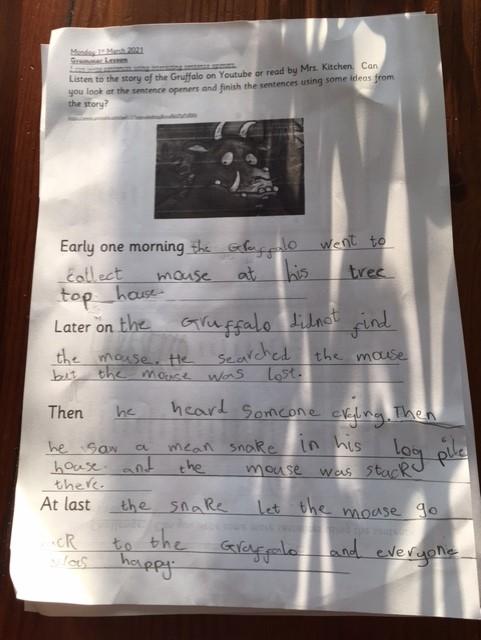 Monday 1st March 2021
Grammar Lesson
Listen to the story of the Gruffalo on Youtube or read by Mrs. Kitchen. Can
you look at the sentence openers and finish the sentences using some ideas from
the story?
Early one morning the Gruffalo went to
collect mouse at his tree
top house.
Later on the Gruffalo didnot find
the mouse. He searched the mouse
but the mouse was lost.
Then he heard someone crying. Then
he saw a mean snake in his log pile
house. and the mouse was stack
there.
At last the snake let the mouse go
to the Gruffalo and everyone
was happy.